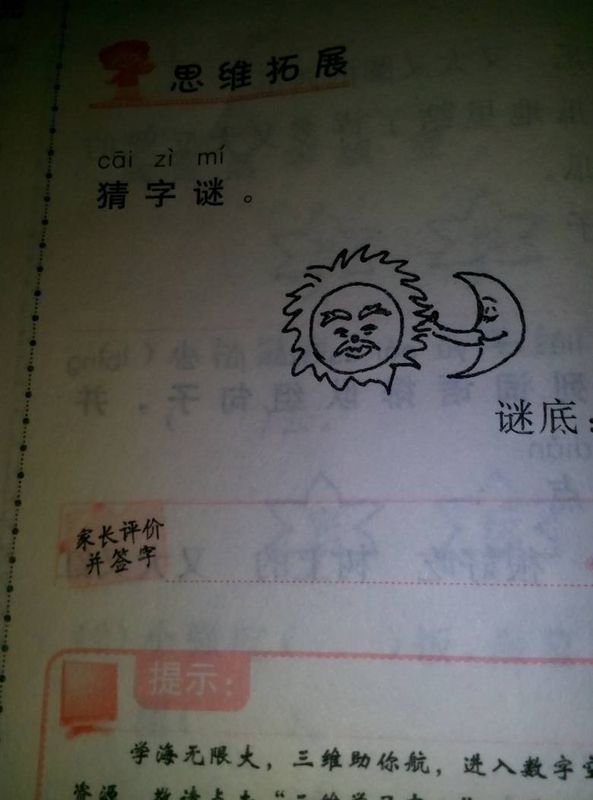 思维拓展
cāi zì mí
猜字谜。
谜底：
家长评价
并签字
提示：
学海无限大，三维助你航，进入数字
资源